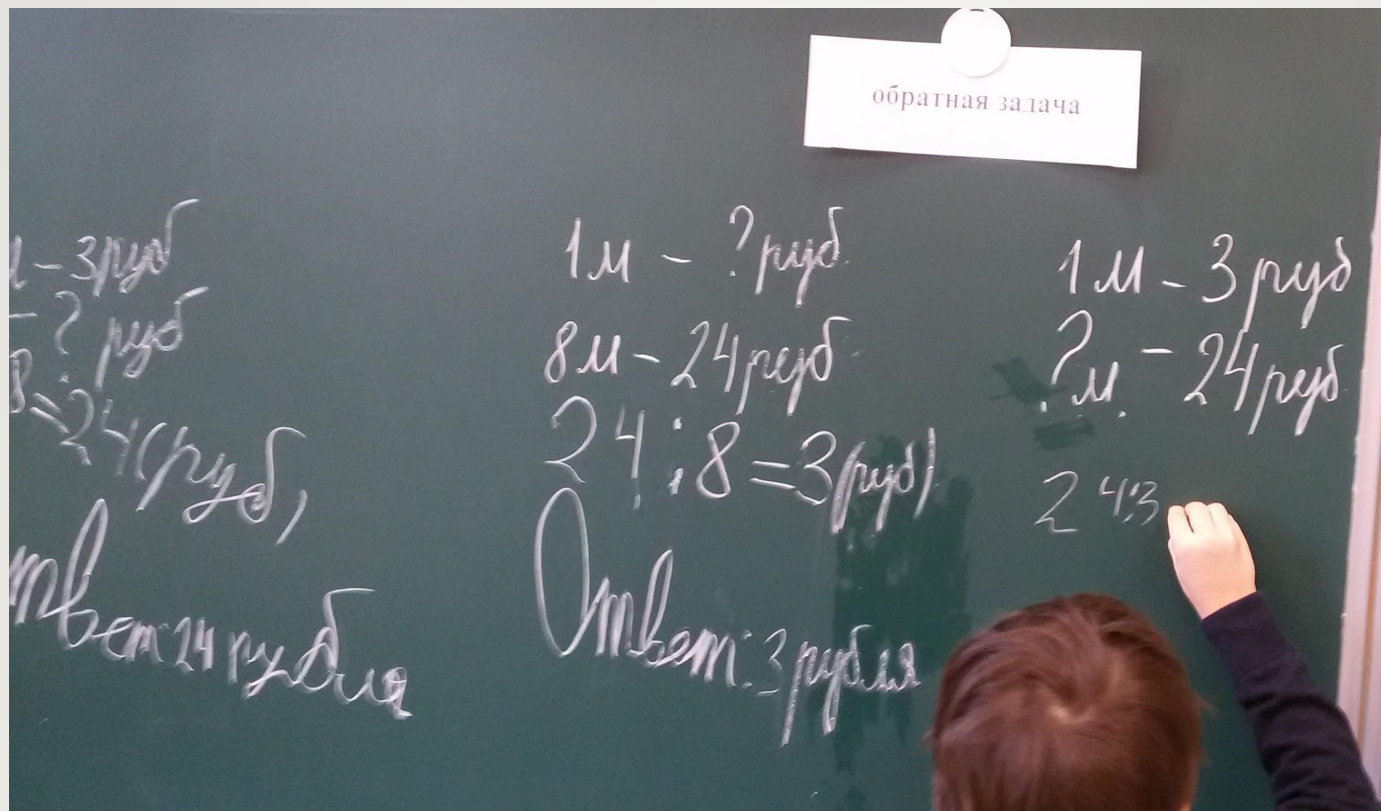 обратная задача
– 3 руб
– ? руб
8 = 24 (руб)
твет: 24 рубля
1 м – ? руб.
8 м – 24 руб.
24 : 8 = 3 (руб).
Ответ: 3 рубля
1 м – 3 руб
? м. – 24 руб.
24:3